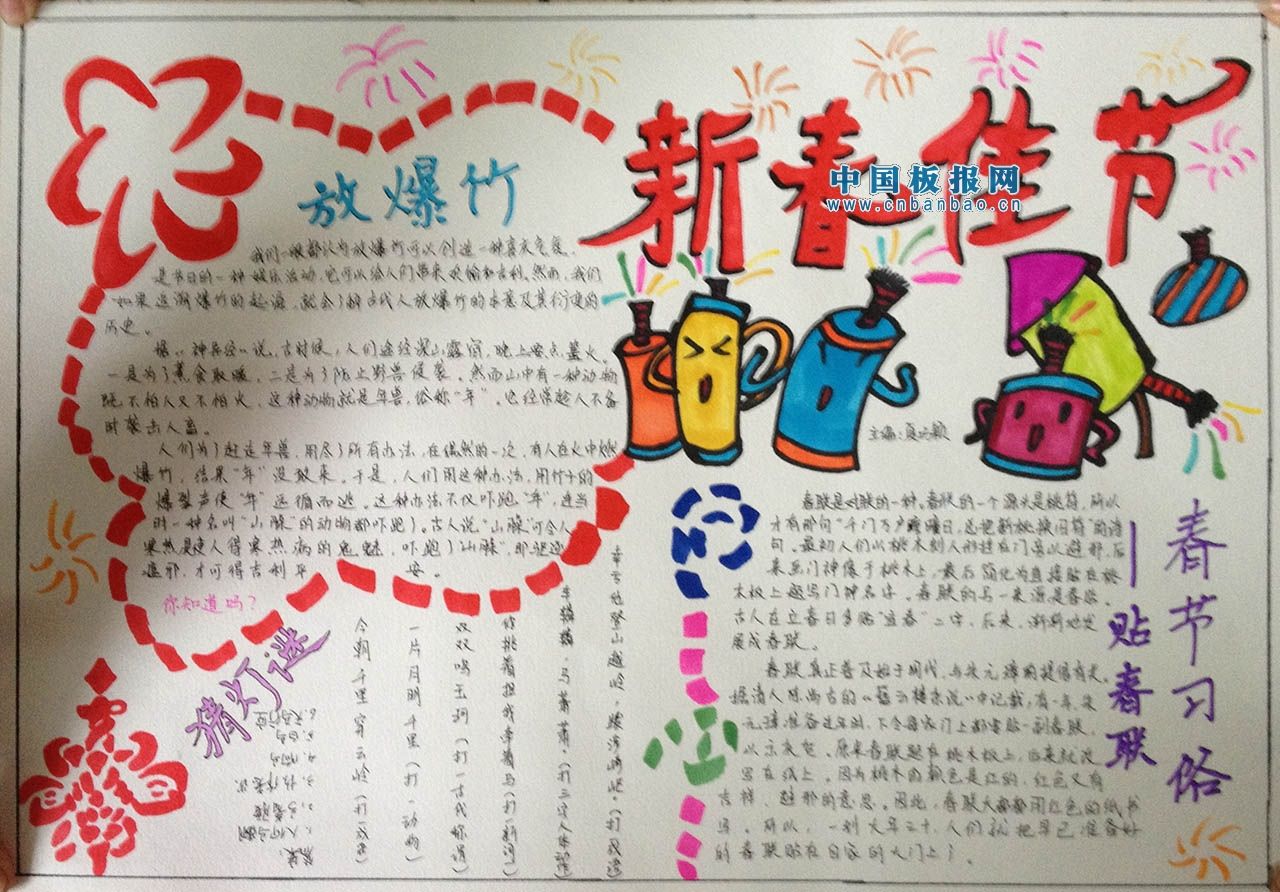 新春佳节
中国板报网
www.cnbanbao.cn
放爆竹
我们一般都认为放爆竹可以创造一种喜庆气氛,
是节日的一种娱乐活动,它可以给人们带来欢愉和吉利。然而,我们
如果追溯爆竹的起源,就会了解古代人放爆竹的本意及其衍变的
历史。
据《神异经》说,古时候,人们途经深山露宿,晚上要点篝火,
一是为了煮食取暖,二是为了防止野兽侵袭。然而山中有一种动物
既不怕人又不怕火,这种动物就是年兽,俗称“年”。它经常趁人不备
时袭击人畜。
人们为了赶走年兽,用尽了所有办法,在偶然的一次,有人在火中燃
爆竹,结果“年”没敢来。于是,人们用这种办法,用竹子的
爆裂声使“年”远循而逃。这种办法不仅吓跑“年”,连当
时一种名叫“山臊”的动物都吓跑了。古人说“山臊”可令人
寒热是使人得寒热病的鬼魅,吓跑了山臊,即驱逐
瘟邪,才可得吉利平安。
你知道吗?
主编:
春节习俗
—贴春联
春联是对联的一种。春联的一个源头是桃符,所以
才有那句“千门万户瞳瞳日,总把新桃换旧符”的诗
句。最初人们以桃木刻人形挂在门旁以避邪,后
来画门神像于桃木上,最后简化为直接贴在桃
木板上题写门神名字。春联的另一来源是春贴。
古人在立春日多贴“宜春”二字,后来,渐渐地发
展成春联。
春联真正普及始于明代,与朱元璋的提倡有关。
据清人陈尚古的《簪云楼杂说》中记载,有一年,朱
元璋准备过年时,下令每家门上都要贴一副春联,
以示庆贺。原来春联题在桃木板上,后来就改
写在纸上。因为桃木的颜色是红的,红色又有
吉祥、避邪的意思。因此,春联大都都用红色的纸书
写。所以,一到大年三十,人们就把早已准备好
的春联贴在自家的大门上了。
猜灯谜
辛云他登山越岭,
车辚辚,马萧萧。(打三字人体
你挑着担我牵着马(打一新词)
双双鸣玉珂(打一古代称谓)
一片月明千里(打一动物)
今朝千里穿云岭(打一成语)
答案: